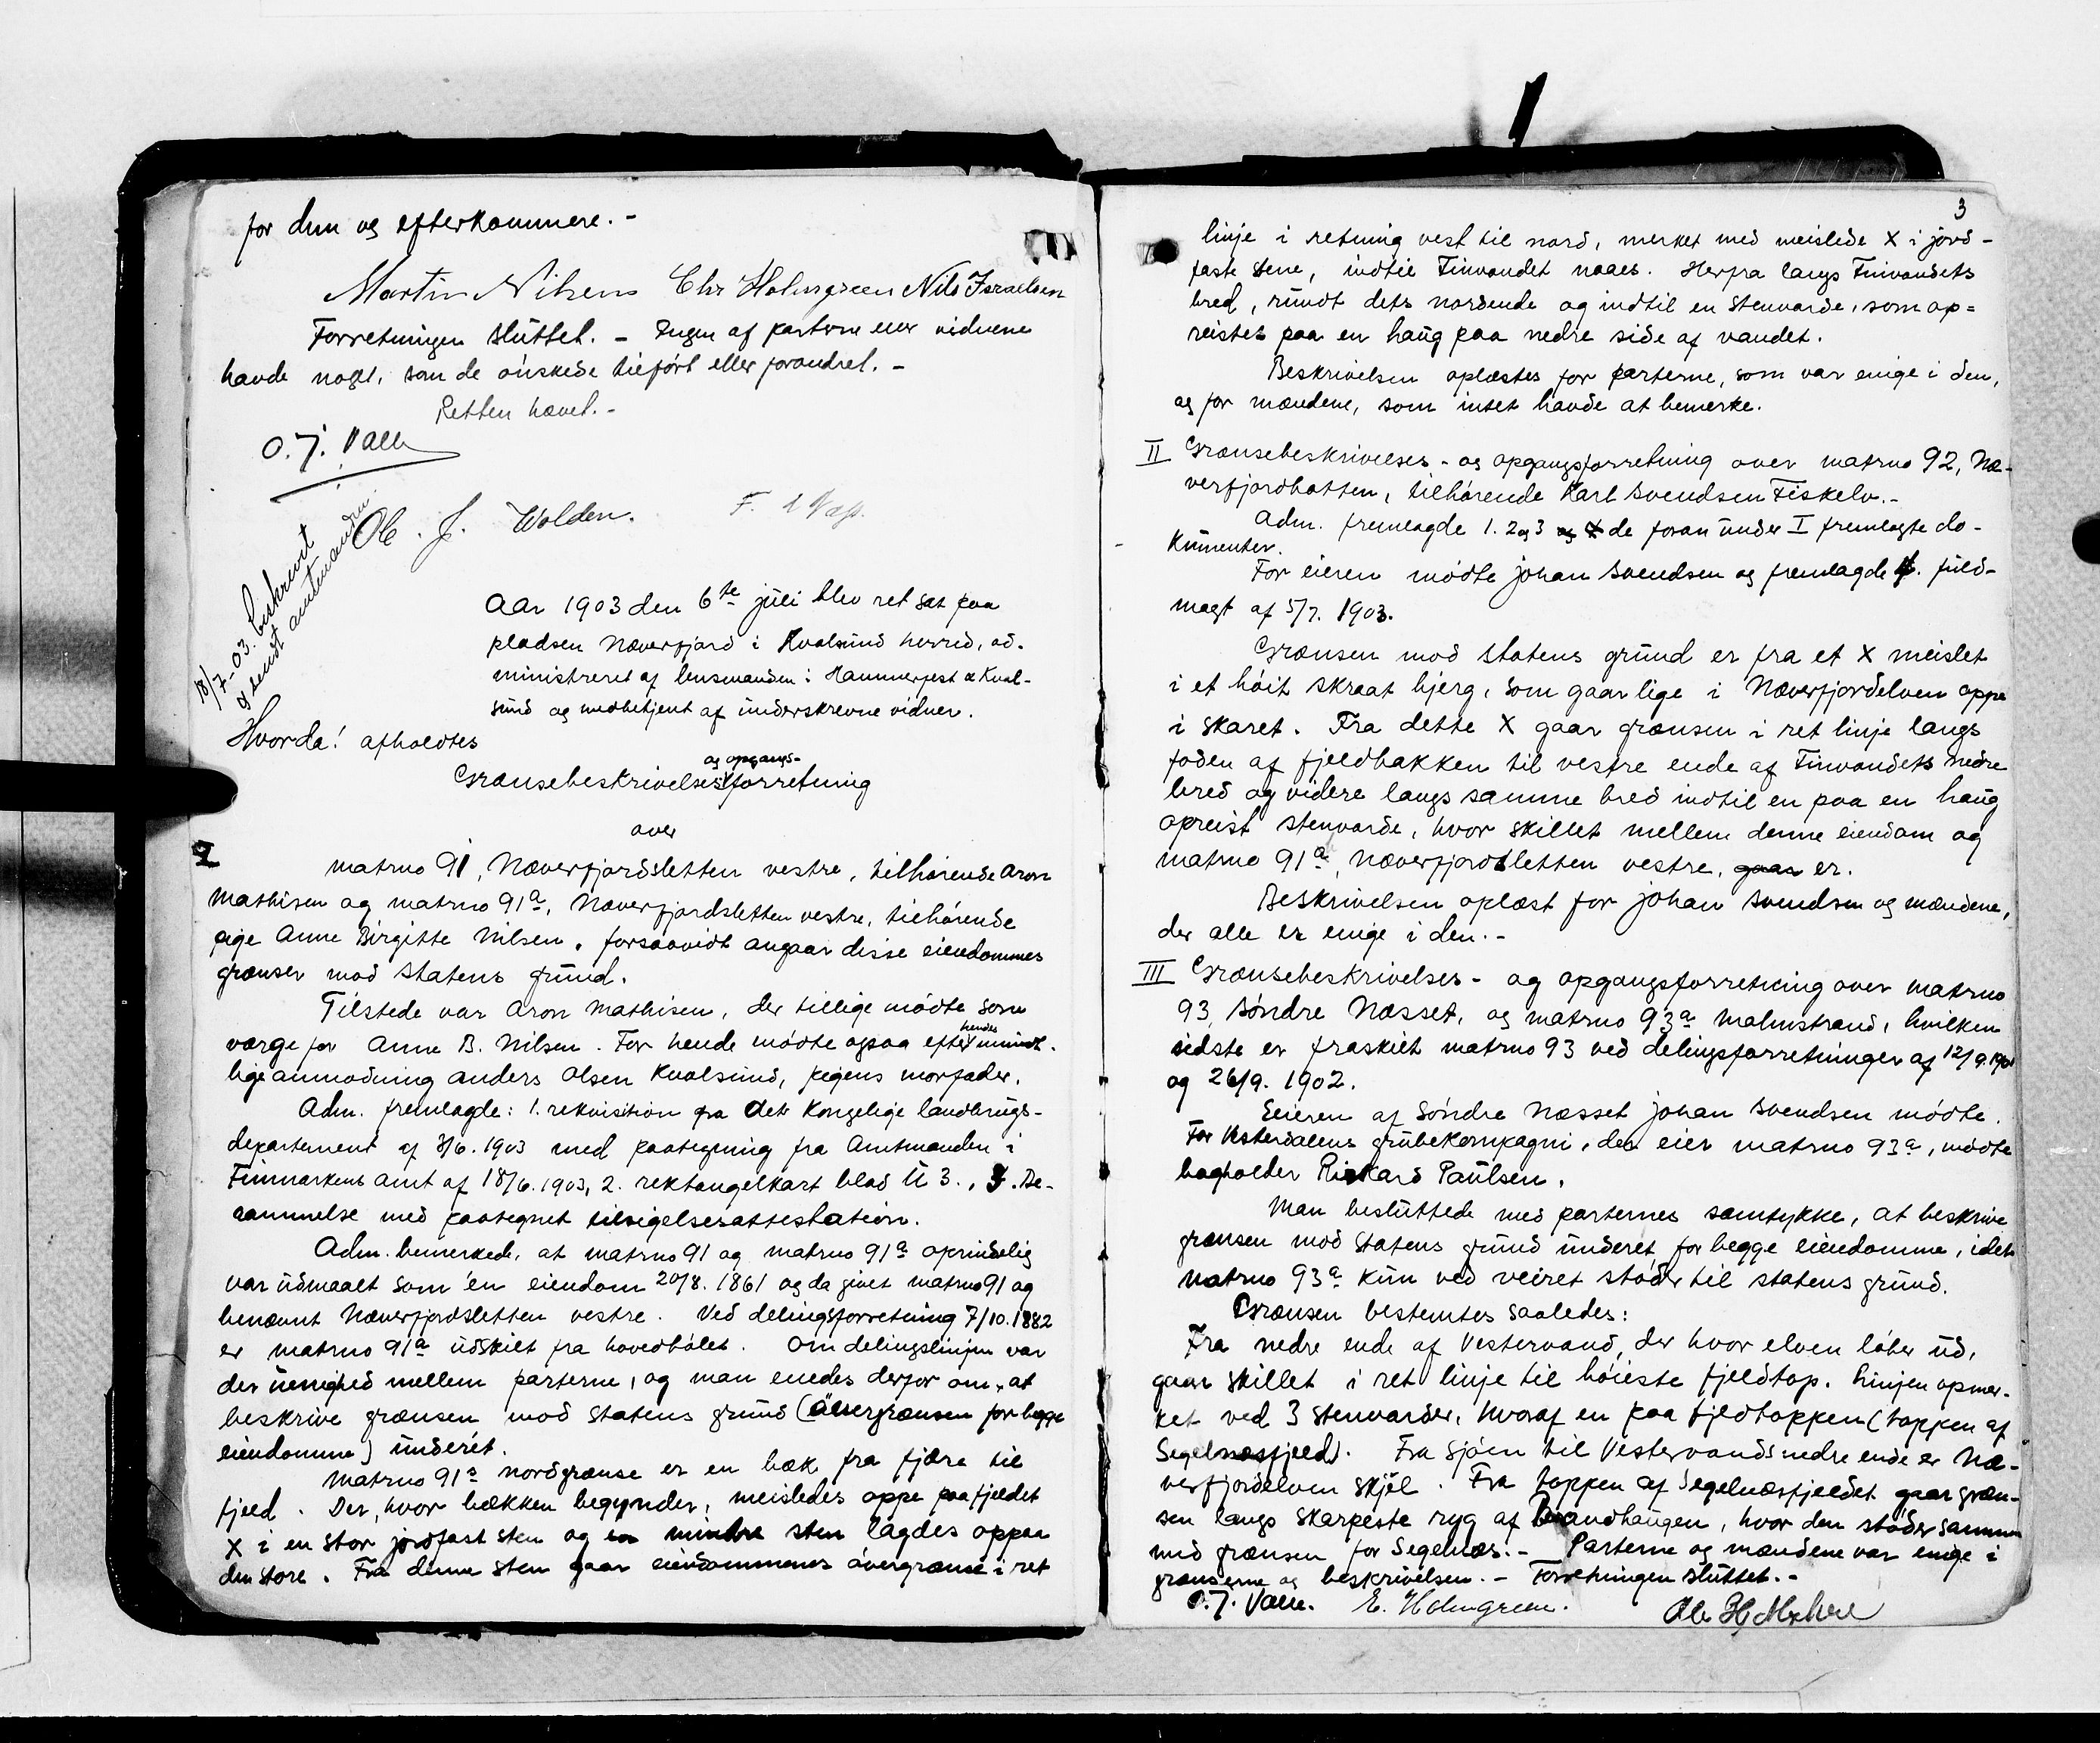 for dem og efterkommere.-
Martin Nilsen Chr Holmgreen Nils Israelsen
Forretningen sluttet. - Ingen af parterne eller vidnerne
havde noget, som de ønskede tilført eller forandret. -
Retten hævet.-
O. J. Valle
Ole. J. Wolden.
18/7-03. beskrevet
og sendt amtmanden
Aar 1903 den 6te juli blev ret sat paa
pladsen Næverfjord i Kvalsund herred, ad-
ministreret af lensmanden i Hammerfest & Kval-
sund og medbetjent af underskrevne vidner.
Hvorda! afholdtes
og opgangs-
Grænsebeskrivelses forretning
over
I
matrno 91, Næverfjordsletten vestre, tilhørende Aron
Mathisen og matrno 91a, Næverfjordsletten vestre, tilhørende
pige Anne Birgitte Nilsen, forsaavidt angaar disse eiendommes
grænser mod statens grund.
Tilstede var Aron Mathisen, der tillige mødte som
værge for Anne B. Nilsen. For hende mødte ogsaa efter hendes mundt-
lige anmodning Anders Olsen Kvalsund, pigens morfader.
Adm. fremlagde: 1. rekvisition fra det kongelige landbrugs-
departement af 3/6. 1903 med paategning fra Amtmanden i
Finmarkens amt af 18/6. 1903, 2. rektangelkart blad U 3., 3. Be-
rammelse med paategnet tilsigelsesattestation.
Adm. bemerkede, at matrno 91 og matrno 91a oprindelig
var udmaalt som én eiendom 20/8. 1861 og da givet matrno 91 og
benævnt Næverfjordsletten vestre. Ved delingsforretning 7/10. 1882
er matrno 91a udskilt fra hovedbølet. Om delingslinjen var
der uenighed mellem parterne, og man enedes derfor om, at
beskrive grænsen mod statens grund (øvergrænsen for begge
eiendomme) underét.
Matrno 91a nordgrænse er en bæk fra fjære til
fjeld. Der, hvor bækken begynder, meisledes oppe paa fjeldet
X i en stor jordfast sten og en mindre sten lagdes oppaa
den store. Fra denne sten gaar eiendommenes øvergrænse i ret
3
linje i retning vest til nord, merket med meislede X i jord-
faste stene, indtil Finvandet naaes. Herfra langs Finvandets
bred, rundt dets nordende og indtil en stenvarde, som op=
reistes paa en haug paa nedre side af vandet.
Beskrivelsen oplæstes for parterne, som var enige i den,
og for mændene, som intet havde at bemerke.
II Grænsebeskrivelses- og opgangsforretning over matrno 92, Næ-
verfjordbotten, tilhørende Karl Svendsen Fiskelv.-
Adm. fremlagde 1. 2 og 3 og 4 de foran under I fremlagte do-
kumenter.
For eieren mødte Johan Svendsen og fremlagde 4. fuld-
magt af 5/7. 1903.
Grænsen mod statens grund er fra et X meislet
i et høit skraat bjerg, som gaar lige i Næverfjordelven oppe
i skaret. Fra dette X gaar grænsen i ret linje langs
foden af fjeldbakken til vestre ende af Finvandets nedre
bred og videre langs samme bred indtil en paa en haug
opreist stenvarde, hvor skillet mellem denne eiendom og
matrno 91a, Næverfjordsletten vestre, gaar er.
Beskrivelsen oplæst for Johan Svendsen og mændene,
der alle er enige i den.-
III Grænsebeskrivelses- og opgangsforretning over matrno
93, Søndre Næsset, og matrno 93a Malmstrand, hvilken
sidste er fraskilt matrno 93 ved delingsforretninger af 12/9. 1901
og 26/9. 1902.
Eieren af Søndre Næsset Johan Svendsen mødte.
For Vesterdalens grubekompagni, der eier matrno 93a, mødte
bogholder Rickard Paulsen.
Man besluttede med parternes samtykke, at beskrive
grænsen mod statens grund underet for begge eiendomme, idet
matrno 93a kun ved veiret støder til statens grund.
Grænsen bestemtes saaledes:
Fra nedre ende af Vestervand, der hvor elven løber ud,
gaar skillet i ret linje til høieste fjeldtop. Linjen opmer-
ket ved 3 stenvarder, hvoraf en paa fjeldtoppen (toppen af
Segelnæsfjeld). Fra sjøen til Vestervands nedre ende er Næ-
verfjordelven skjel. Fra toppen af Segelnæsfjeldet gaar græn-
sen langs skarpeste ryg af Brandhaugen, hvor den støder sammen
med grænsen for Segelnæs.- Parterne og mændene var enige i
grænserne og beskrivelsen. - Forretningen sluttet.-
O. J. Valle. E. Holmgreen.